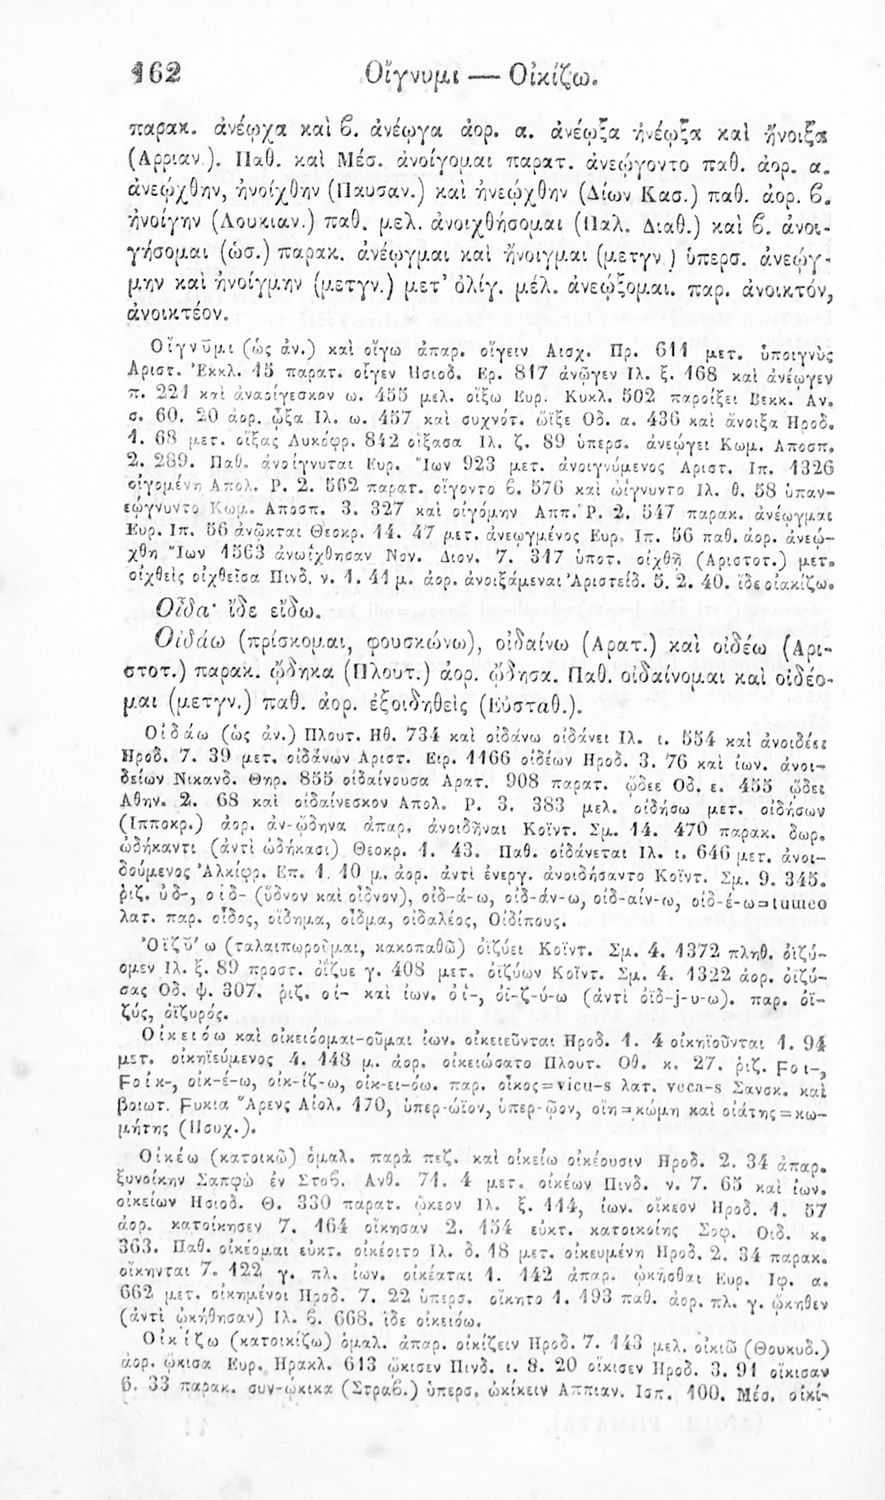 162 Οἴγνυμι — Οἰκίζω.
παρακ. ἀνέῳχα καὶ ϐ. ἀνέῳγα ἀορ. α. ἀνέῳξα ἠνέῳξα καὶ ἤνοιξα
(Αρριαν.). Παθ. καὶ Μέσ. ἀνοίγομαι παρατ. ἀνεῴγοντο παθ. ἀορ. α.
ἀνεῴχθην, ἠνοίχθην (Παυσαν.) καὶ ἠνεῴχθην (Δίων Κασ.) παθ. ἀορ. ϐ.
ἠνοίγην (Λουκιαν.) παθ. μελ. ἀνοιχθήσομαι (Παλ. Διαθ.) καὶ ϐ. ἀνοι-
γήσομαι (ὡσ.) παρακ. ἀνέῳγμαι καὶ ἤνοιγμαι (μετγν.) ὑπερσ. ἀνεῴγ-
μην καὶ ἠνοίγμην (μετγν.) μετ' ὀλίγ. μέλ. ἀνεῴξομαι. παρ. ἀνοικτόν,
ἀνοικτέον.
Οἴγνῦμι (ὡς ἀν.) καὶ οἴγω ἀπαρ. οἴγειν Αισχ. Πρ. 611 μετ. ὑποιγνὺς
Αριστ. Ἐκκλ. 15 παρατ. οἶγεν Ησιοδ. Ερ. 817 ἀνῷγεν Ιλ. ξ. 168 καὶ ἀνέῳγεν
π. 221 καὶ ἀναοίγεσκον ω. 455 μελ. οἴξω Ευρ. Κυκλ. 502 παροίξει Βεκκ. Αν.
σ. 60. 20 ἀορ. ᾦξα Ιλ. ω. 457 καὶ συχνότ. ὤϊξε Οδ. α. 436 καὶ ἄνοιξα Ηροδ.
1. 68 μετ. οἴξας Λυκόφρ. 842 οἴξασα Ιλ. ζ. 89 ὑπερσ. ἀνεῴγει Κωμ. Αποσπ.
2. 289. Παθ. ἀνοίγνυται Ευρ. Ἴων 923 μετ. ἀνοιγνύμενος Αριστ. Ιπ. 1326
οἰγομένη Απολ. Ρ. 2. 562 παρατ. οἴγοντο ϐ. 576 καὶ ὠίγνυντο Ιλ. θ. 58 ὑπαν-
εῴγνυντο Κωμ. Αποσπ. 3. 327 καὶ οἰγόμην Αππ. Ρ. 2. 547 παρακ. ἀνέῳγμαι
Ευρ. Ιπ. 56 ἀνῷκται Θεοκρ. 14. 47 μετ. ἀνεῳγμένος Ευρ. Ιπ. 56 παθ. ἀορ. ἀνεῴ-
χθη Ἴων 1563 ἀνωίχθησαν Νον. Διον. 7. 317 ὑποτ. οἰχθῇ (Αριστοτ.) μετ.
οἰχθεὶς οἰχθεῖσα Πινδ. ν. 1. 41 μ. ἀορ. ἀνοιξάμεναι Ἀριστείδ. 5. 2. 40. ἴδε οἰακίζω.
Οἶδα· ἴδε εἴδω.
Οἰδάω (πρίσκομαι, φουσκώνω), οἰδαίνω (Αρατ.) καὶ οἰδέω (Αρι-
στοτ.) παρακ. ᾤδηκα (Πλουτ.) ἀορ. ᾤδησα. Παθ. οἰδαίνομαι καὶ οἰδέο-
μαι (μετγν.) παθ. ἀορ. ἐξοιδηθεὶς (Εὐσταθ.).
Οἰδάω (ὡς ἀν.) Πλουτ. Ηθ. 734 καὶ οἰδάνω οἰδάνει Ιλ. ι. 554 καὶ ἀνοιδέει
Ηροδ. 7. 39 μετ. οἰδάνων Αριστ. Ειρ. 1166 οἰδέων Ηροδ. 3. 76 καὶ ἰων. ἀνοι-
δείων Νικανδ. Θηρ. 855 οἰδαίνουσα Αρατ. 908 παρατ. ᾤδεε Οδ. ε. 455 ᾤδει
Αθην. 2. 68 καὶ οἰδαίνεσκον Απολ. Ρ. 3. 383 μελ. οἰδήσω μετ. οἰδήσων
(Ιπποκρ.) ἀορ. ἀν-ῴδηνα ἀπαρ. ἀνοιδῆναι Κοϊντ. Σμ. 14. 470 παρακ. δωρ.
ᾠδήκαντι (ἀντὶ ᾠδήκασι) Θεοκρ. 1. 43. Παθ. οἰδάνεται Ιλ. ι. 646 μετ. ἀνοι-
δούμενος Ἀλκίφρ. Επ. 1. 10 μ. ἀορ. ἀντὶ ἐνεργ. ἀνοιδήσαντο Κοϊντ. Σμ. 9. 345.
ῥιζ. ὑδ-, οἰδ- (ὕδνον καὶ οἶδνον), οἰδ-ά-ω, οἰδ-άν-ω, οἰδ-αίν-ω, οἰδ-έ-ω=tumeo
λατ. παρ. οἶδος, οἴδημα, οἶδμα, οἰδαλέος, Οἰδίπους.
Ὀϊζύω (ταλαιπωροῦμαι, κακοπαθῶ) ὀϊζύει Κοϊντ. Σμ. 4. 1372 πληθ. ὀϊζύ-
ομεν Ιλ. ξ. 89 προστ. ὀΐζυε γ. 408 μετ. ὀϊζύων Κοϊντ. Σμ. 4. 1322 ἀορ. ὀϊζύ-
σας Οδ. ψ. 307. ῥιζ. οἰ- καὶ ἰων. ὀϊ-, ὀϊ-ζ-ύ-ω (ἀντὶ ὀϊδ-j-υ-ω). παρ. ὀϊ-
ζύς, ὀϊζυρός.
Οἰκειόω καὶ οἰκειόομαι-οῦμαι ἰων. οἰκειεῦνται Ηροδ. 1. 4 οἰκηϊοῦνται 1. 94
μετ. οἰκηϊεύμενος 4. 148 μ. ἀορ. οἰκειώσατο Πλουτ. Οθ. κ. 27. ῥιζ. Ϝοι-,
Ϝοίκ-, οἰκ-έ-ω, οἰκ-ίζ-ω, οἰκ-ει-όω. παρ. οἶκος=vicu-s λατ. veca-s Σανσκ. καὶ
βοιωτ. Ϝυκια Ἄρενς Αἰολ. 170, ὑπερ-ώϊον, ὑπερ-ῷον, οἴη=κώμη καὶ οἰάτης=κω-
μήτης (Ησυχ.).
Οἰκέω (κατοικῶ) ὁμαλ. παρὰ πεζ. καὶ οἰκείω οἰκέουσιν Ηροδ. 2. 34 ἀπαρ.
ξυνοίκην Σαπφὼ ἐν Στοϐ. Ανθ. 71. 4 μετ. οἰκέων Πινδ. ν. 7. 65 καὶ ἰων.
οἰκείων Ησιοδ. Θ. 330 παρατ. ᾤκεον Ιλ. ξ. 114, ἰων. οἴκεον Ηροδ. 1. 57
ἀορ. κατοίκησεν 7. 164 οἴκησαν 2. 154 εὐκτ. κατοικοίης Σοφ. Οιδ. κ.
363. Παθ. οἰκέομαι εὐκτ. οἰκέοιτο Ιλ. δ. 18 μετ. οἰκευμένη Ηροδ. 2. 34 παρακ.
οἴκηνται 7. 122 γ. πλ. ἰων. οἰκέαται 1. 142 ἀπαρ. ᾠκῆσθαι Ευρ. Ιφ. α.
662 μετ. οἰκημένοι Ηροδ. 7. 22 ὑπερσ. οἴκητο 1. 193 παθ. ἀορ. πλ. γ. ᾤκηθεν
(ἀντὶ ᾠκήθησαν) Ιλ. ϐ. 668. ἴδε οἰκειόω.
Οἰκίζω (κατοικίζω) ὁμαλ. ἀπαρ. οἰκίζειν Ηροδ. 7. 143 μελ. οἰκιῶ (Θουκυδ.)
ἀορ. ᾤκισα Ευρ. Ηρακλ. 613 ᾤκισεν Πινδ. ι. 8. 20 οἴκισεν Ηροδ. 3. 91 οἴκισαν
6. 33 παρακ. συν-ῴκικα (Στραϐ.) ὑπερσ. ᾠκίκειν Αππιαν. Ισπ. 100. Μέσ. οἰκί-